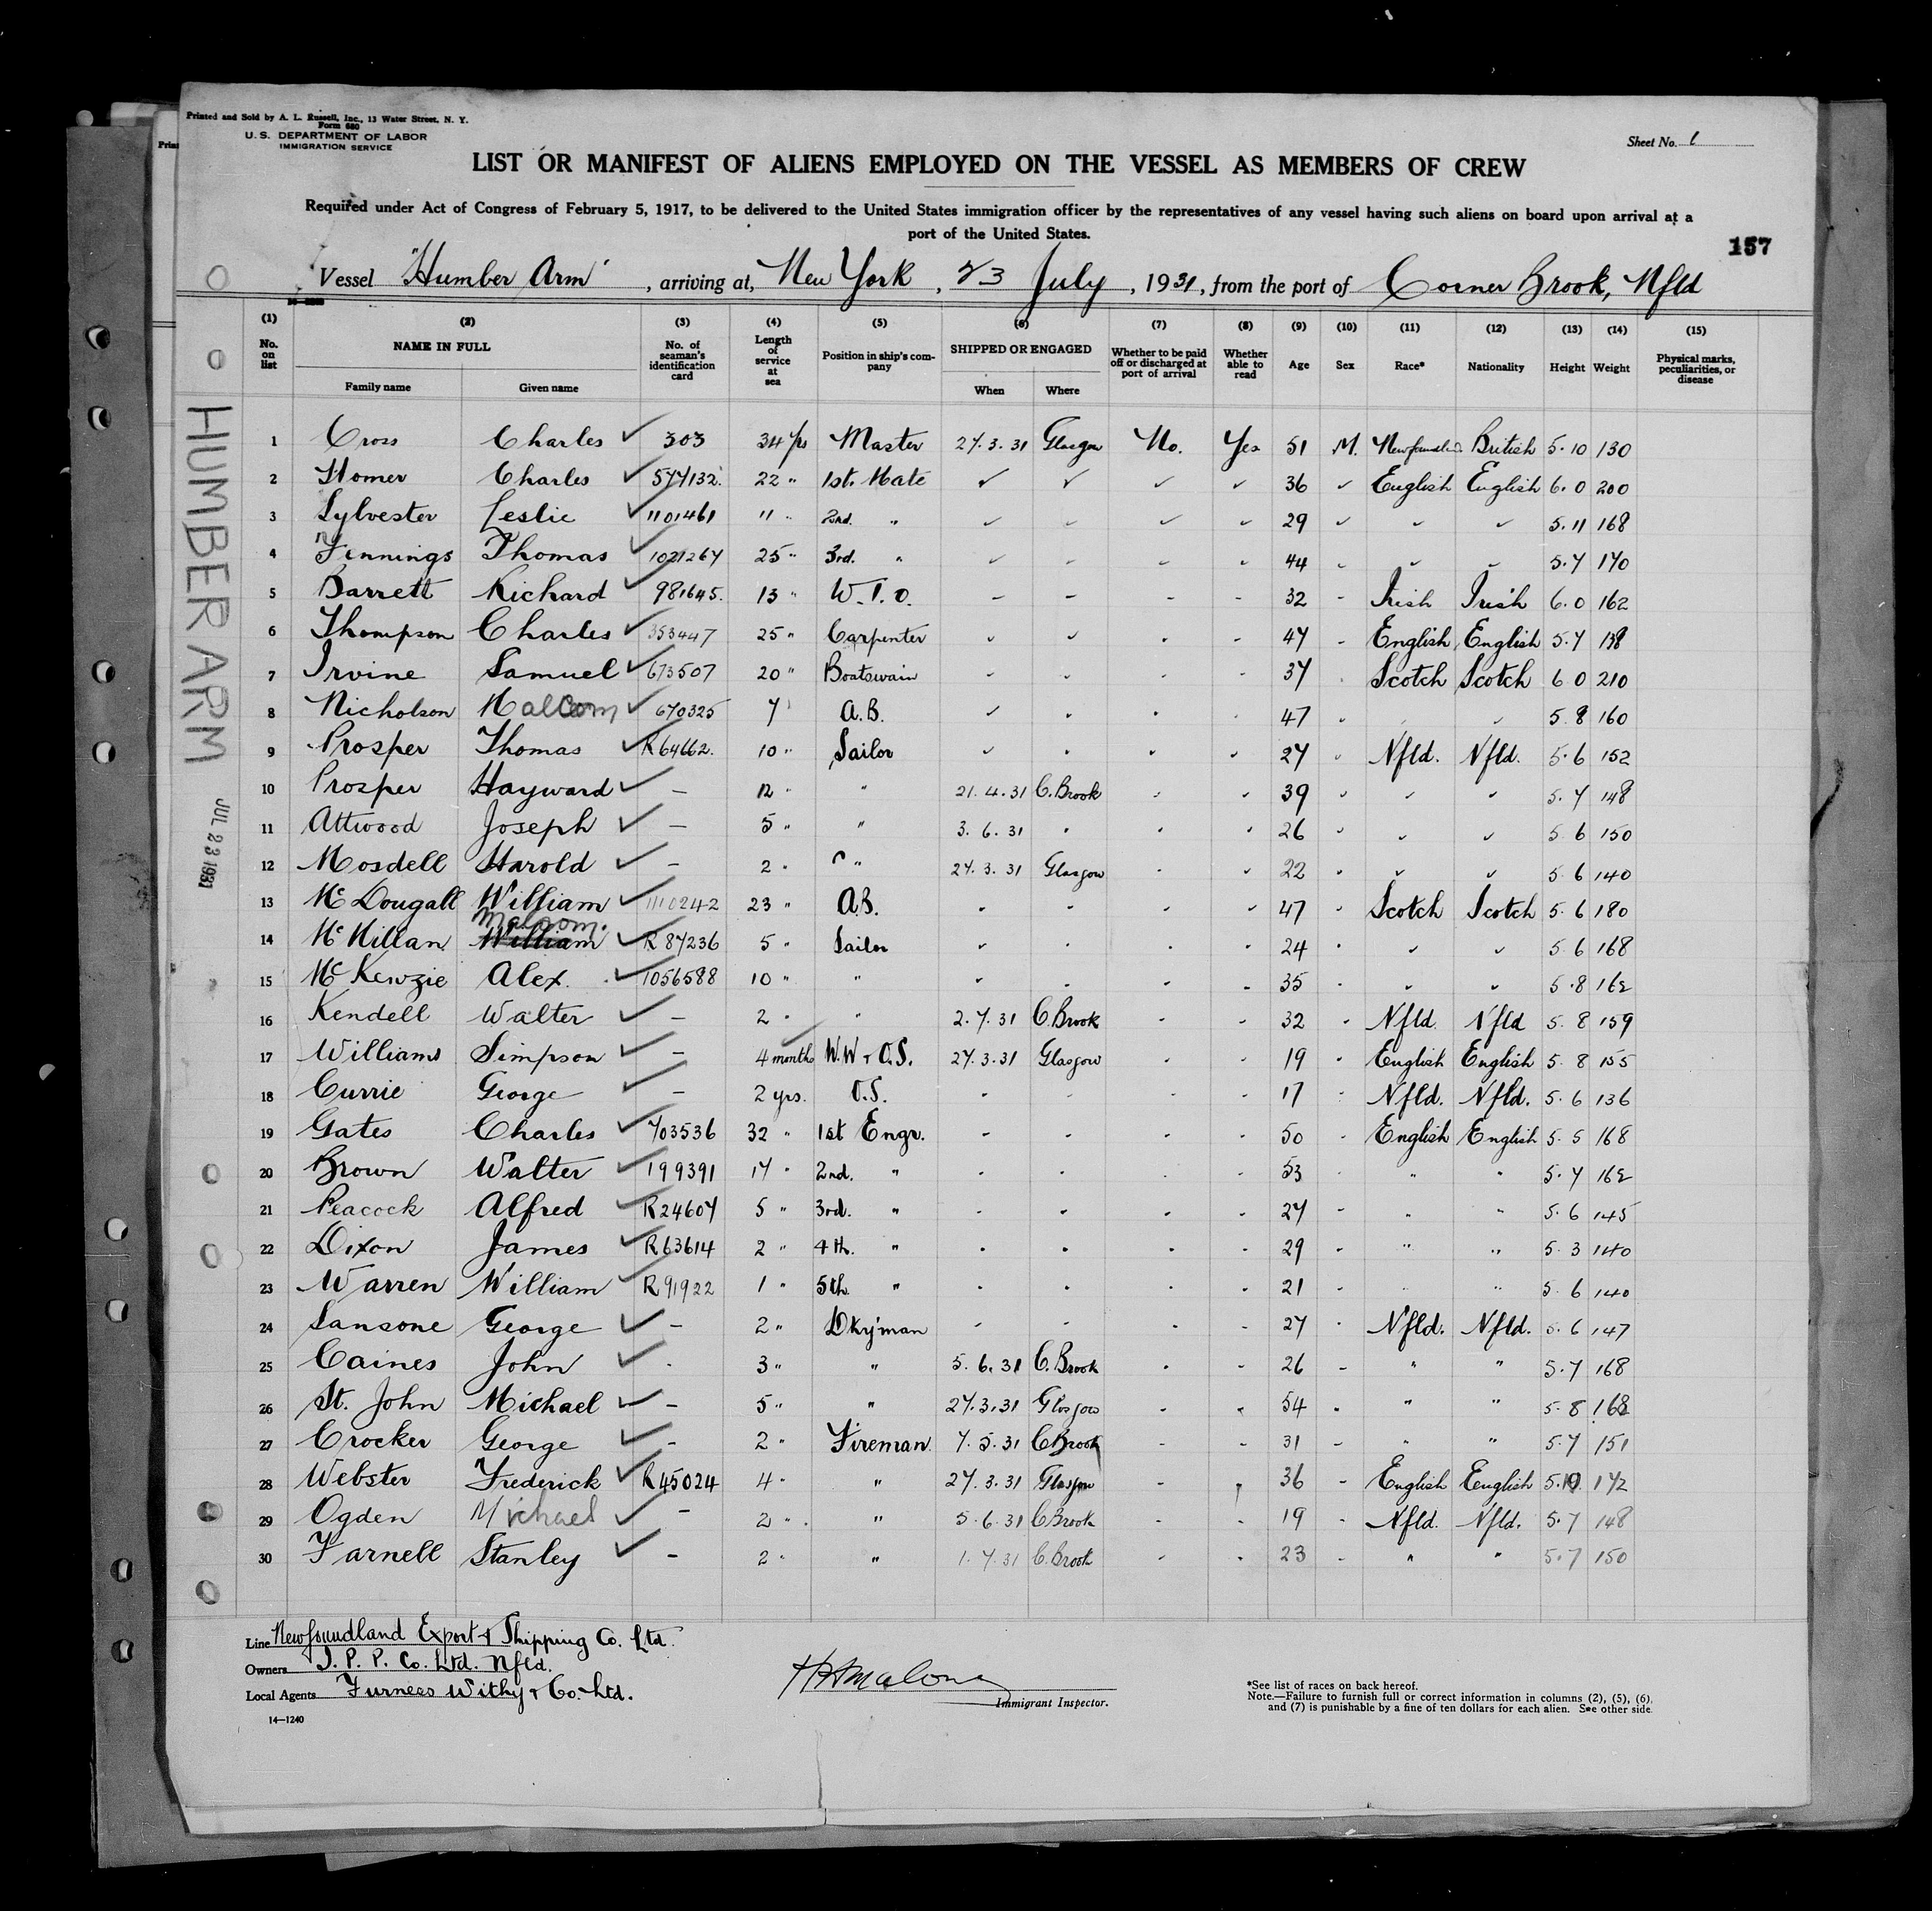 Printed and Sold by A. L. Russell, Inc., 13 Water Street, N. Y.
Form 680
U. S. DEPARTMENT OF LABOR
IMMIGRATION SERVICE
Sheet No. 1
LIST OR MANIFEST OF ALIENS EMPLOYED ON THE VESSEL AS MEMBERS OF CREW
Required under Act of Congress of February 5, 1917, to be delivered to the United States immigration officer by the representatives of any vessel having such aliens on board upon arrival at a
port of the United States.
157
Vessel "Humber Arm", arriving at, New York, 23 July, 1931, from the port of Corner Brook, Nfld
(1) (2) (3) (4) (5) (6) (7) (8) (9) (10) (11) (12) (13) (14) (15)
No. on list NAME IN FULL Family name Given name No. of seaman's identification card Length of service at sea Position in ship's company SHIPPED OR ENGAGED When Where Whether to be paid off or discharged at port of arrival Whether able to read Age Sex Race* Nationality Height Weight Physical marks, peculiarities, or disease
1 Cross Charles ✓ 303 34 yrs Master 27.3.31 Glasgow No. Yes 51 M. Newfoundland British 5.10 130
2 Homer Charles ✓ 577132 22 " 1st. Mate ✓ ✓ ✓ ✓ 36 ✓ English English 6.0 200
3 Sylvester Leslie ✓ 1101461 11 " 2nd. " 29 5.11 168
4 Jennings Thomas ✓ 1021267 25 " 3rd. " 44 5.7 170
5 Barrett Richard ✓ 981645 13 " W.T.O. 32 Irish Irish 6.0 162
6 Thompson Charles ✓ 353447 25 " Carpenter 47 English English 5.7 138
7 Irvine Samuel ✓ 673507 20 " Boatswain 37 Scotch Scotch 6 0 210
8 Nicholson Malcom ✓ 670325 7 A.B. 47 5.8 160
9 Prosper Thomas ✓ R64662 10 " Sailor 27 Nfld. Nfld. 5.6 152
10 Prosper Hayward ✓ - 12 " " 21.4.31 C. Brook 39 5.7 148
11 Attwood Joseph ✓ - 5 " " 3.6.31 " 26 5 6 150
12 Mosdell Harold ✓ - 2 " " 27.3.31 Glasgow 22 5 6 140
13 McDougall William ✓ 1110242 23 " A.B. 47 Scotch Scotch 5.6 180
14 McMillan Malcom. ✓ R 87236 5 " Sailor 24 5 6 168
15 McKenzie Alex. ✓ 1056588 10 " " 35 5.8 162
16 Kendell Walter ✓ - 2 " " 2.7.31 C. Brook 32 Nfld. Nfld 5.8 159
17 Williams Simpson ✓ - 4 months W.W & O.S. 27.3.31 Glasgow 19 English English 5.8 155
18 Currie George ✓ - 2 yrs. O.S. 17 Nfld. Nfld. 5.6 136
19 Gates Charles ✓ 703536 32 " 1st Engr. 50 English English 5.5 168
20 Brown Walter ✓ 199391 17 " 2nd. " 53 " " 5.7 162
21 Peacock Alfred ✓ R24607 5 " 3rd. " 27 " " 5.6 145
22 Dixon James ✓ R63614 2 " 4th. " 29 " " 5 3 140
23 Warren William ✓ R91922 1 " 5th. " 21 " " 5 6 140
24 Sansone George ✓ - 2 " Dky'man 27 Nfld. Nfld. 5.6 147
25 Caines John ✓ - 3 " " 5.6.31 C. Brook 26 " " 5.7 168
26 St. John Michael ✓ - 5 " " 27.3.31 Glasgow 54 " " 5.8 168
27 Crocker George ✓ - 2 " Fireman 7.5.31 C Brook 31 " " 5.7 151
28 Webster Frederick ✓ R45024 4 " " 27.3.31 Glasgow 36 English English 5.10 172
29 Ogden Michael ✓ - 2 " " 5.6.31 C Brook 19 Nfld. Nfld. 5.7 148
30 Farnell Stanley ✓ - 2 " " 1.7.31 C. Brook 23 " " 5.7 150
HUMBER ARM
JUL 23 1931
Line Newfoundland Export & Shipping Co. Ltd.
Owners I. P. P. Co. Ltd. Nfld.
Local Agents Furness Withy & Co. Ltd.
14—1240
Immigrant Inspector.
*See list of races on back hereof.
Note.—Failure to furnish full or correct information in columns (2), (5), (6), and (7) is punishable by a fine of ten dollars for each alien. See other side.